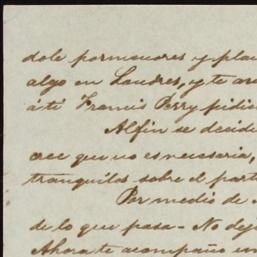 dole pormenores y plan
algo en Londres, y te as
á ti Francis Perry pidie
Alfin se decide
cree que no es necesaria,
tranquilos sobre el part
Por medio de
de lo que pasa - No dej
Ahora te acompaño un